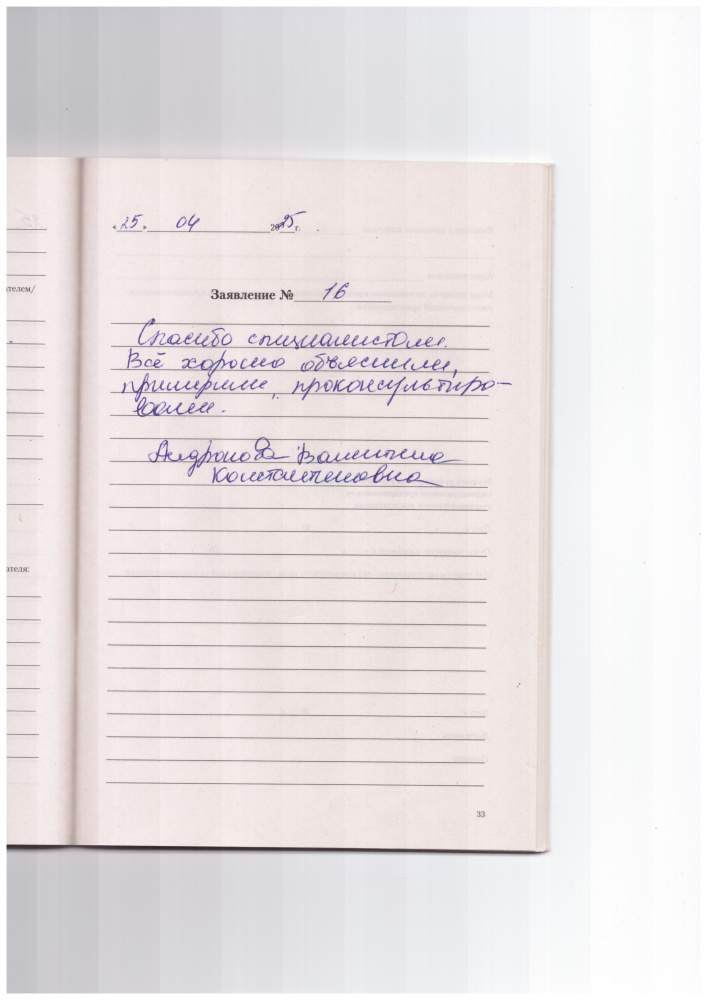 «25» 04 2025г.
ателем/
Заявление № 16
Спасибо специалистам.
Всё хорошо объяснили,
примерили, проконсультиро-
вали.
Андронова Валентина
Константиновна
ателя:
33